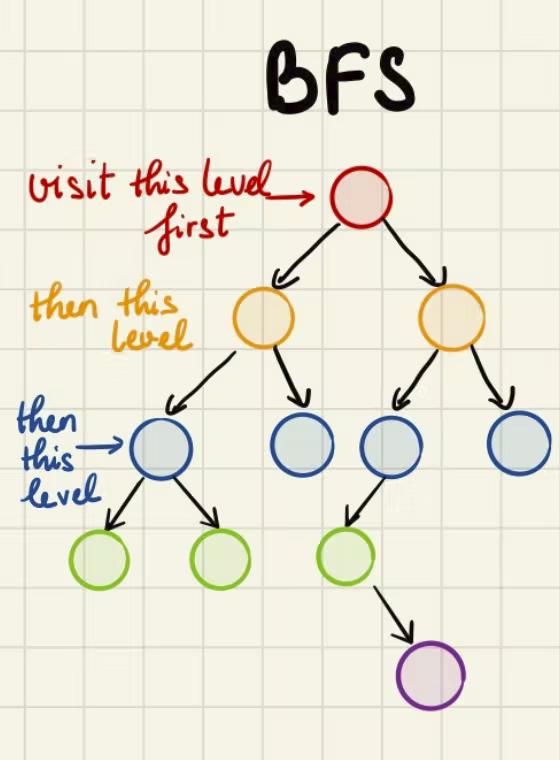 BFS
visit this level
first
then this
level
then
this
level